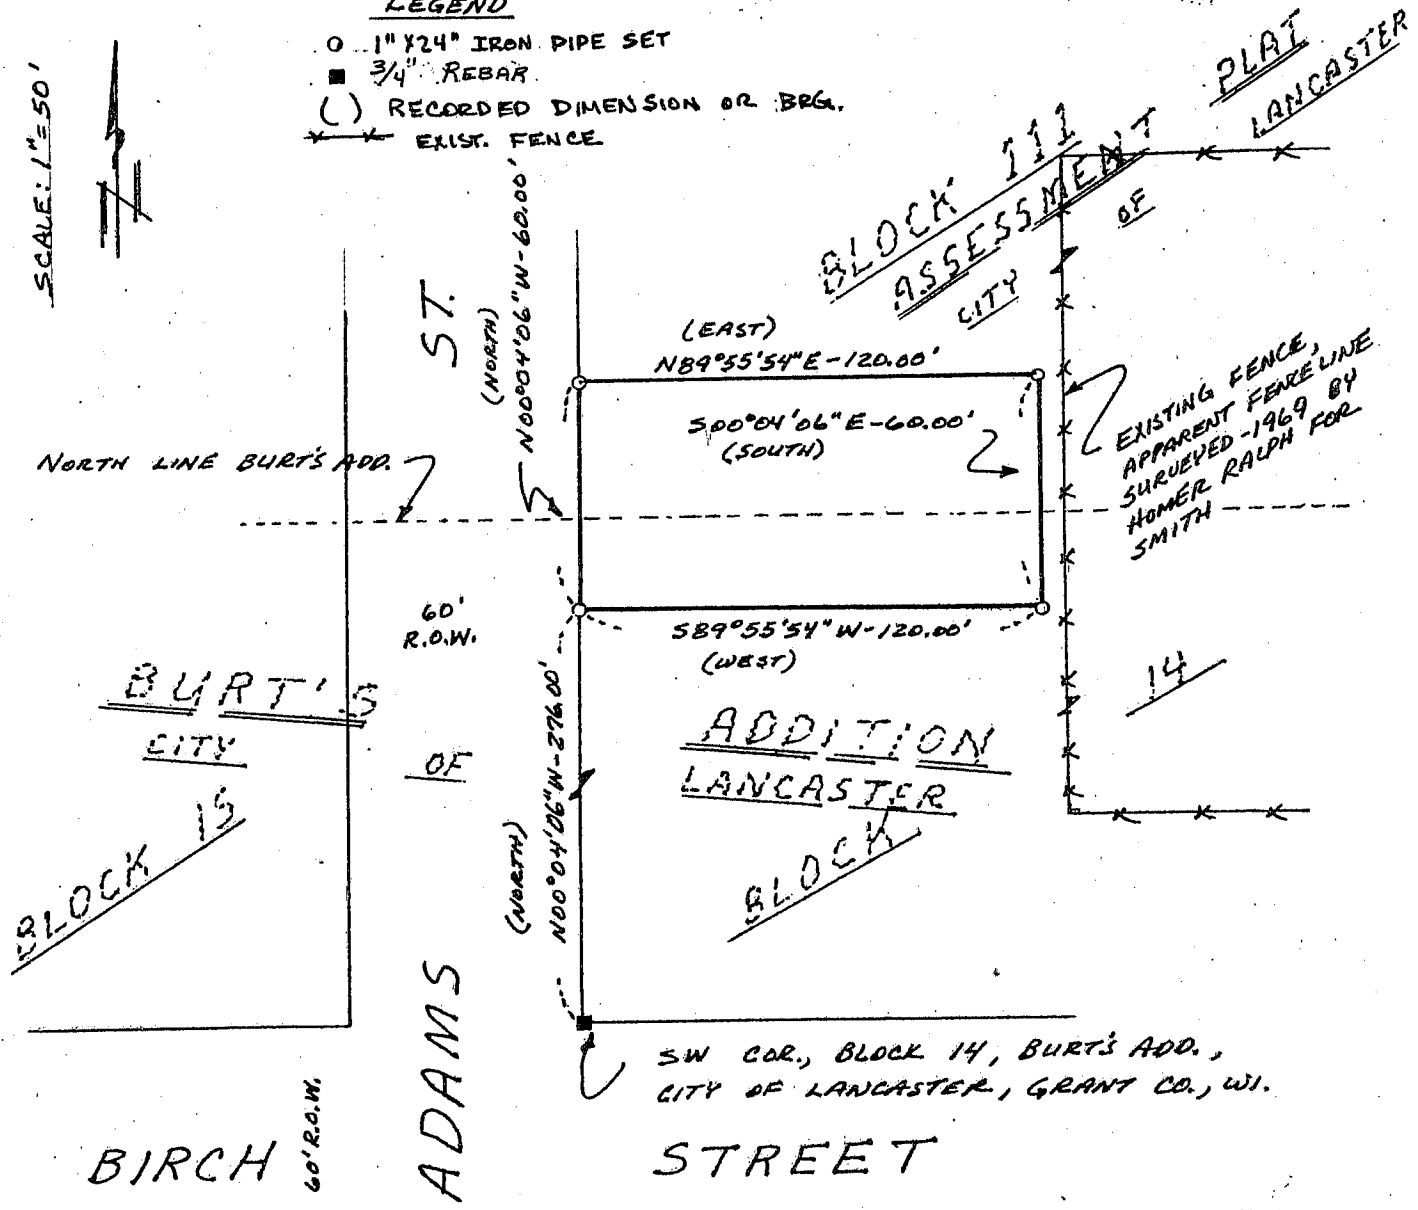 LEGEND
1" X 24" IRON PIPE SET
3/4" REBAR
( ) RECORDED DIMENSION OR BRG.
EXIST. FENCE
SCALE: 1"=50'
PLAT
LANCASTER
BLOCK 111
ASSESSMENT
OF
CITY
ST.
(NORTH)
N00°04'06"W-60.00'
(EAST)
N89°55'54"E-120.00'
S00°04'06"E-60.00'
(SOUTH)
EXISTING FENCE,
APPARENT FENCE LINE
SURVEYED-1969 BY
HOMER RALPH FOR
SMITH
NORTH LINE BURT'S ADD.
60'
R.O.W.
S89°55'54"W-120.00'
(WEST)
14
BURT'S
CITY
OF
ADDITION
LANCASTER
BLOCK 15
BLOCK
(NORTH)
N00°04'06"W-276.00'
ADAMS
SW COR., BLOCK 14, BURT'S ADD.,
CITY OF LANCASTER, GRANT CO., WI.
BIRCH
60' R.O.W.
STREET